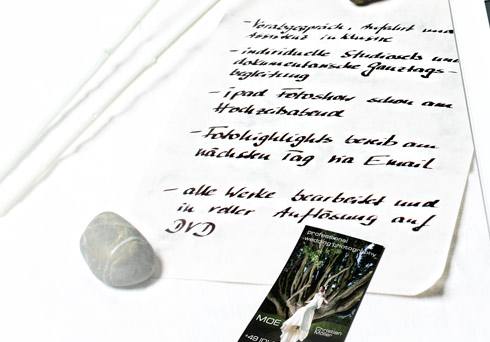 - Vorabgespräch, Anfahrt und
Assistenz inklusive
- individuelle Studiosets und
dokumentarische Ganztags-
begleitung
- ipad Fotoshow schon am
Hochzeitsabend
- Fotohighlights bereits am
nächsten Tag via Email
- alle Werke bearbeitet und
in voller Auflösung auf
DVD
professional
wedding photography
MOE
Christian